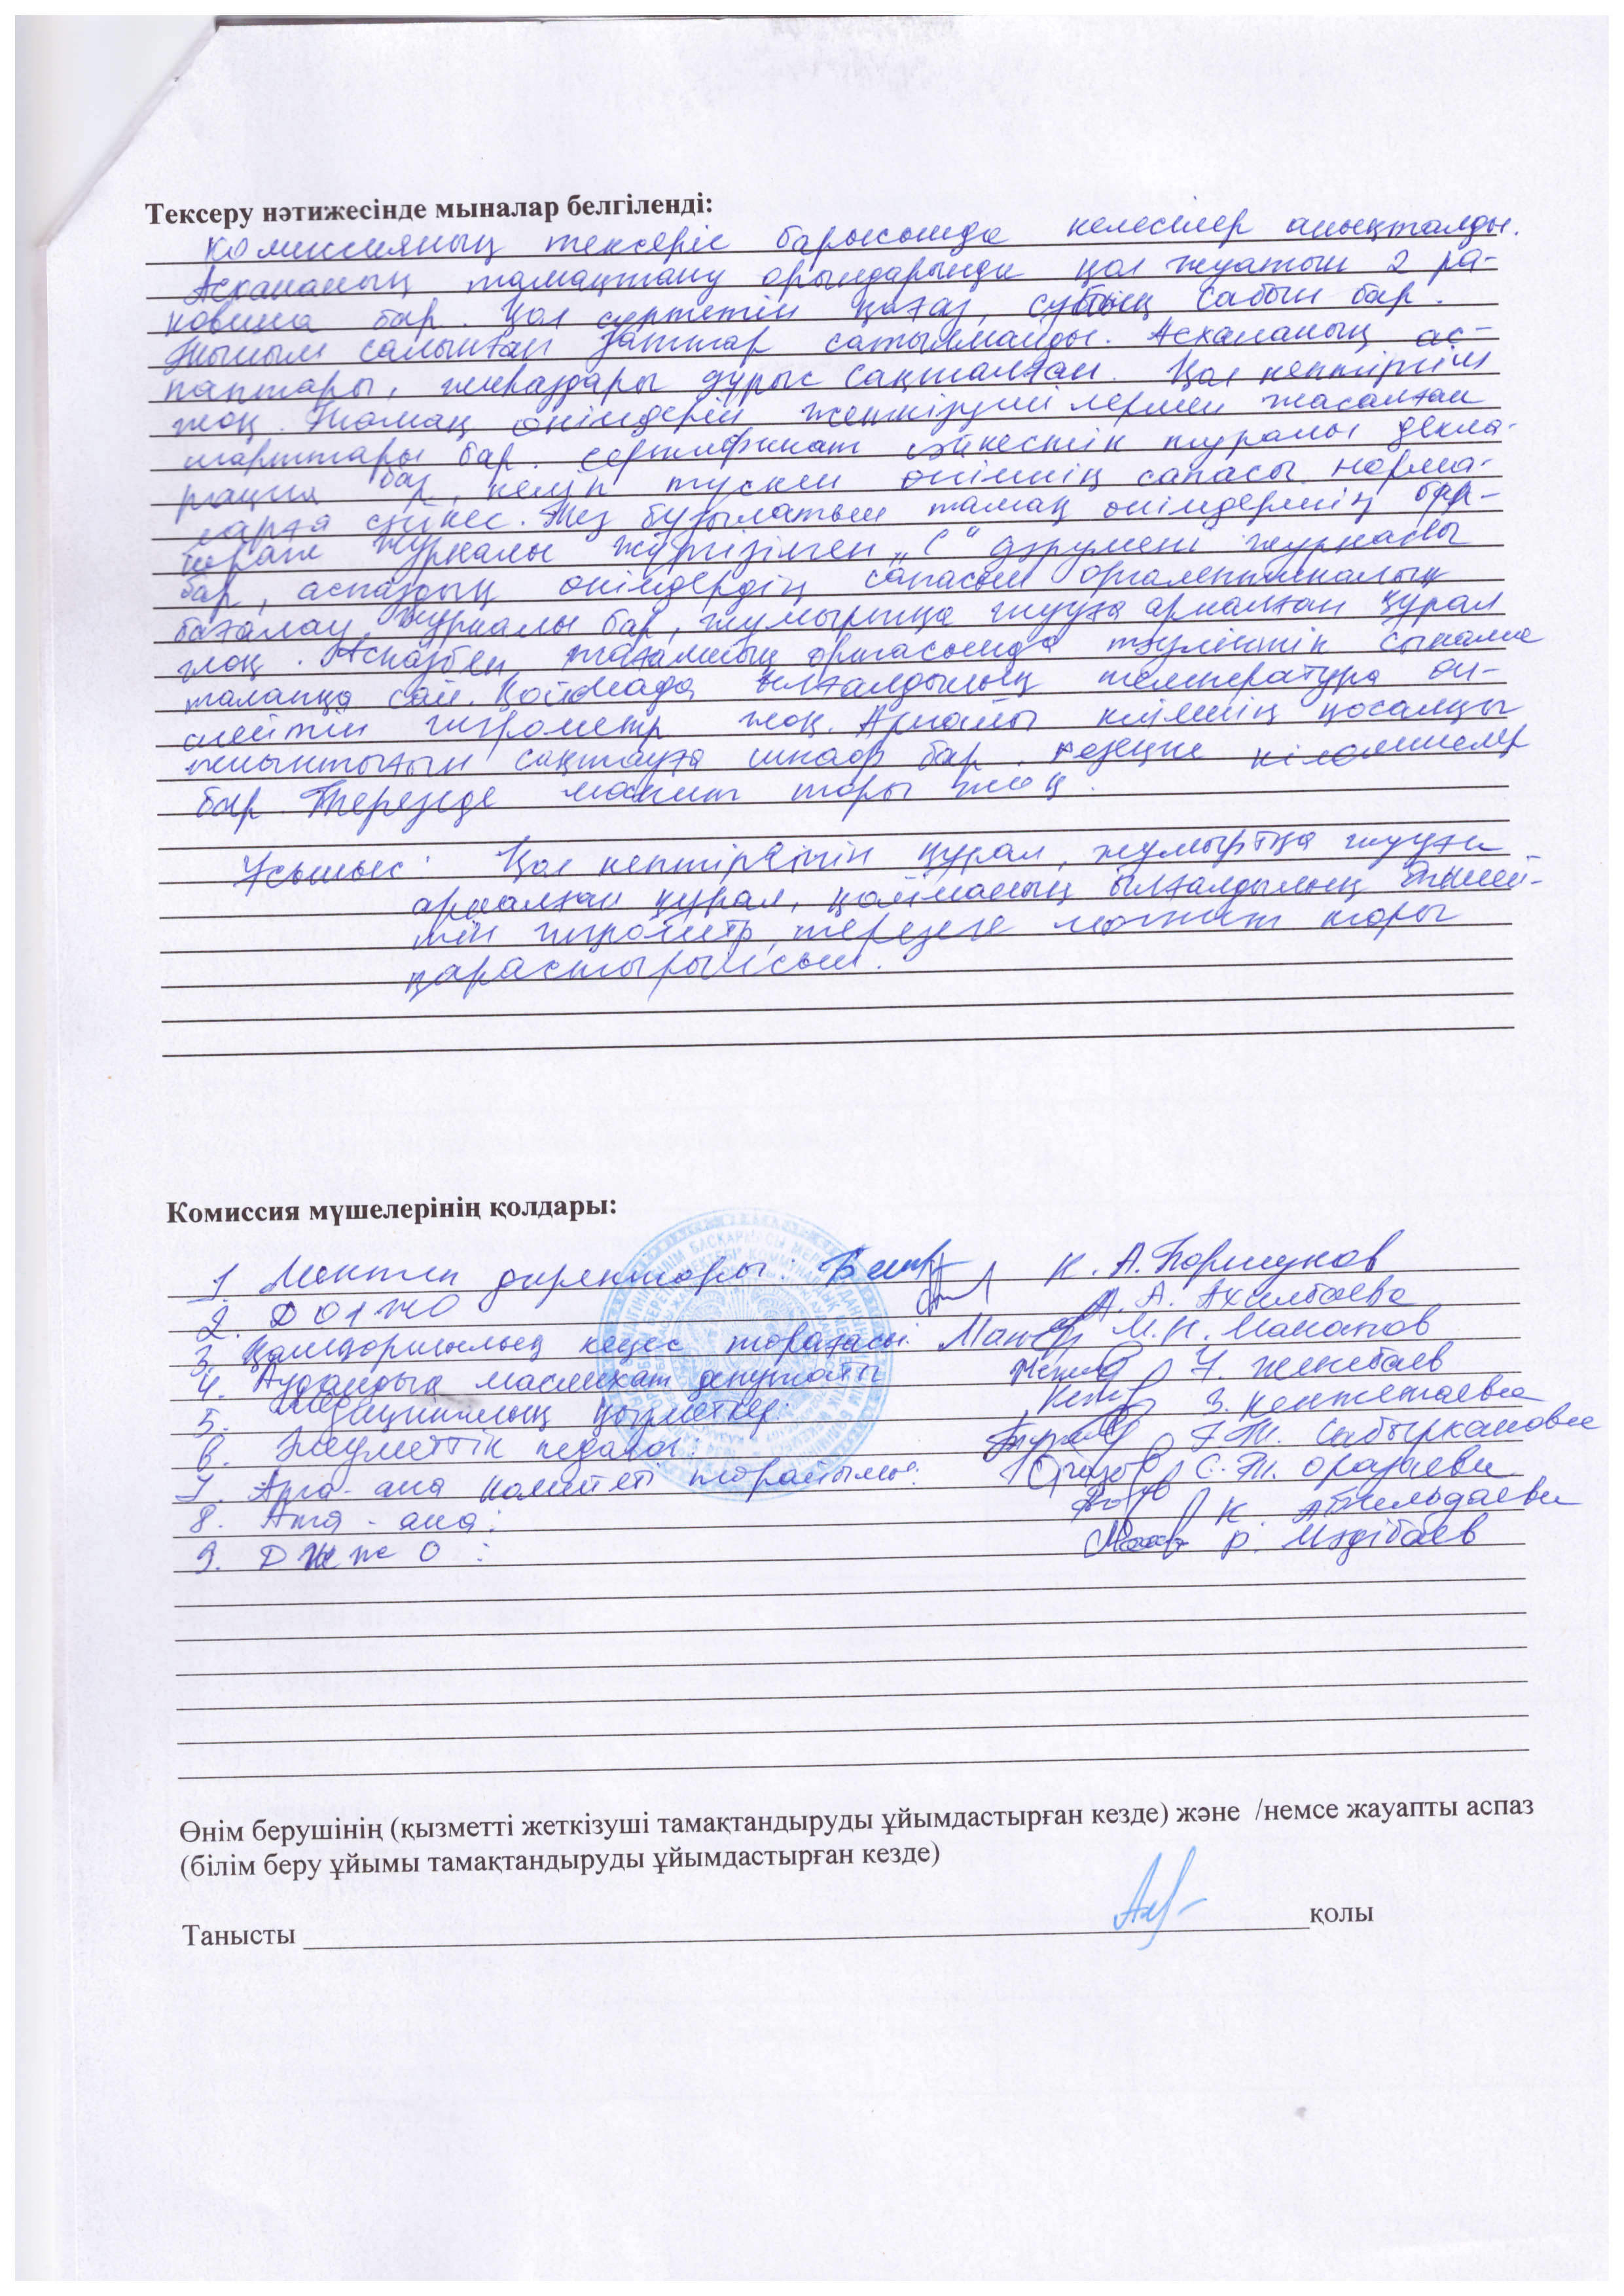 Тексеру нәтижесінде мыналар белгіленді:
Комиссияның тексеріс барысында келесілер анықталды.
Асхананың тамақтану орындарында қол жуатын 2 ра-
ковина бар. Қол сүртетін қағаз, сұйық сабын бар.
Тыйым салынған заттар сатылмайды. Асхананың ас-
паптары, жиһаздары дұрыс сақталған. Қол кептіргіш
жоқ. Тамақ өнімдерін жеткізушілермен жасалған
шарттары бар. Сертификат сәйкестік туралы декла-
рация бар, келіп түскен өнімнің сапасы норма-
ларға сәйкес. Тез бұзылатын тамақ өнімдерінің
журналы жүргізілген „С" дәрумені журналы
бар, аспаздың өнімдердің сапасын органолептикалық
бағалау журналы бар, жұмыртқа жууға арналған құрал
жоқ. Аспазбен тағамның ортасында тәуліктік сынама
талапқа сай. Қоймада ылғалдылық температура өл-
шейтін гигрометр жоқ. Арнайы киімнің қосалқы
жиынтығын сақтауға шкаф бар. Резеңке кілемшелер
бар. Терезеде москит торы жоқ.
Ұсыныс: Қол кептіргішін құрал, жұмыртқа жууға
арналған құрал, қойманың ылғалдылық
гигрометр, терезеге москит торы
қарастырылсын.
Комиссия мүшелерінің қолдары:
1. Мектеп директоры: К. А. Боршуков
2. ДОІЖО А. А. Ахилбаева
3. Қамқоршылық кеңес төрағасы: М.К. Маканов
4. Аудандық маслихат депутаты Ү. Женебаев
5. Медициналық қызметкер: З. Кентетаева
6. Әлеуметтік педагог: Г.Т. Сабырканова
7. Ата-ана комитеті төрайымы: С.Т. Оразаева
8. Ата-ана: К. Абильдаева
9. : Р. Мәдібаев
Өнім берушінің (қызметті жеткізуші тамақтандыруды ұйымдастырған кезде) және /немсе жауапты аспаз
(білім беру ұйымы тамақтандыруды ұйымдастырған кезде)
Танысты қолы